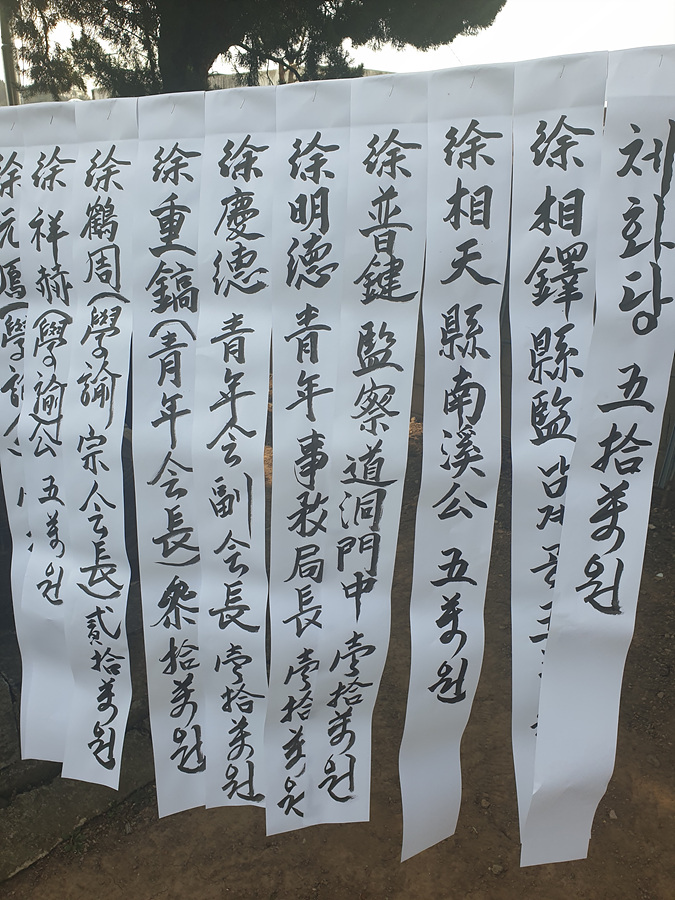 체화당 五拾萬원
徐相鐸 縣監
徐相天 縣南溪公 五萬원
徐普鍵 監察道洞門中 壹拾萬원
徐明德 青年事務局長 壹拾萬원
徐慶德 青年会副会長 壹拾萬원
徐重鎬(青年会長) 參拾萬원
徐鶴周(學諭 宗会長) 貳拾萬원
徐祥赫(學諭)公 五萬원
徐元